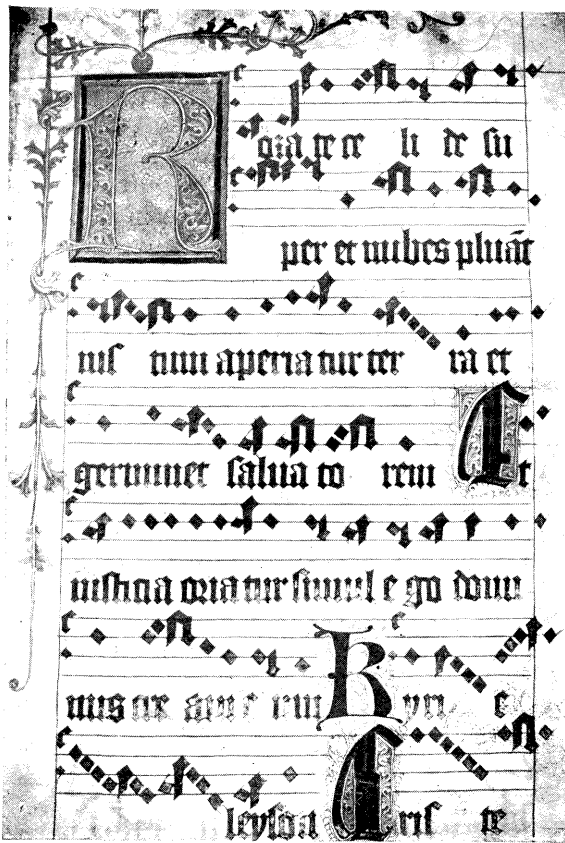 Rora te ce li de ſu
per et nubes pluāt
iuſ tum aperia tur ter ra et
germinet ſalua to rem Et
iuſticia oria tur ſimul e go domi
nus cre aui e um Kyri e
leyſon Criſ te